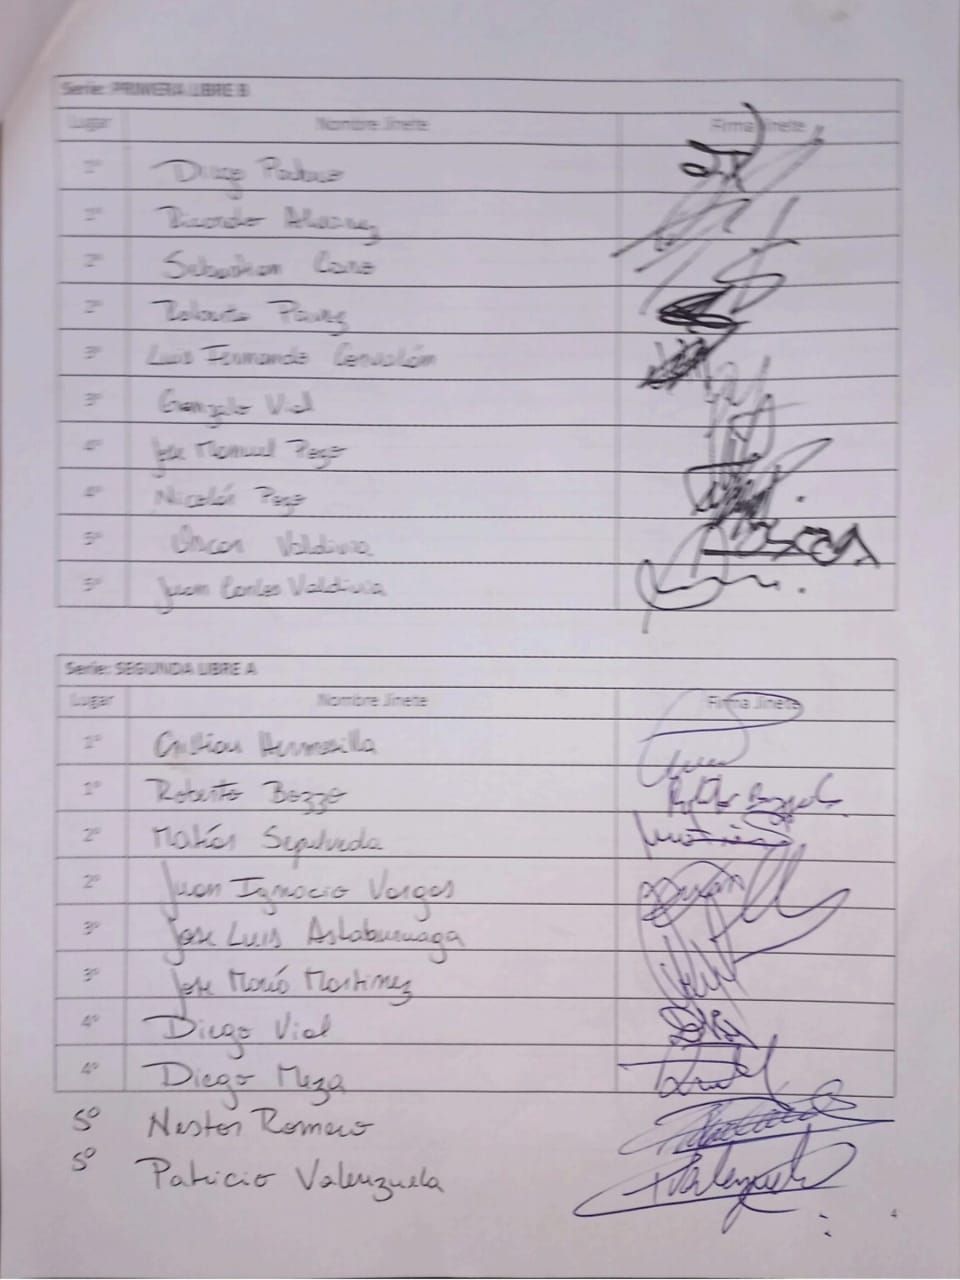 Serie: PRIMERA LIBRE B
Lugar Nombre Jinete Firma Jinete
1° Diego
2° Ricardo Alvarez
2° Sebastian Cano
2° Roberto Pavez
3° Luis Fernando
3° Gonzalo Vial
4° Jose Manuel Pozo
4° Nicolás Pozo
5° Oscar Valdivia
5° Juan Carlos Valdivia
Serie: SEGUNDA LIBRE A
Lugar Nombre Jinete Firma Jinete
1° Cristian Hermosilla
1° Roberto Bozzo
2° Matías Sepulveda
2° Juan Ignacio Vargas
3° Jose Luis Astaburuaga
3° Jose María Martinez
4° Diego Vial
4° Diego Meza
5° Nestor Romero
5° Patricio Valenzuela
4